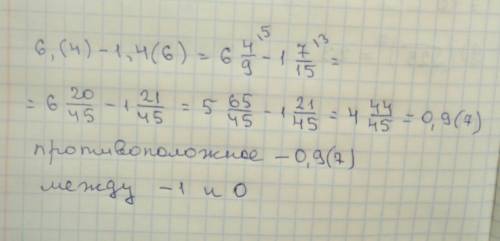 6,(4) - 1,4(6) = 6 4/9 ^5 - 1 7/15 ^3 =
= 6 20/45 - 1 21/45 = 5 65/45 - 1 21/45 = 4 44/45 = 0,9(7)
противоположное - 0,9(7)
между -1 и 0